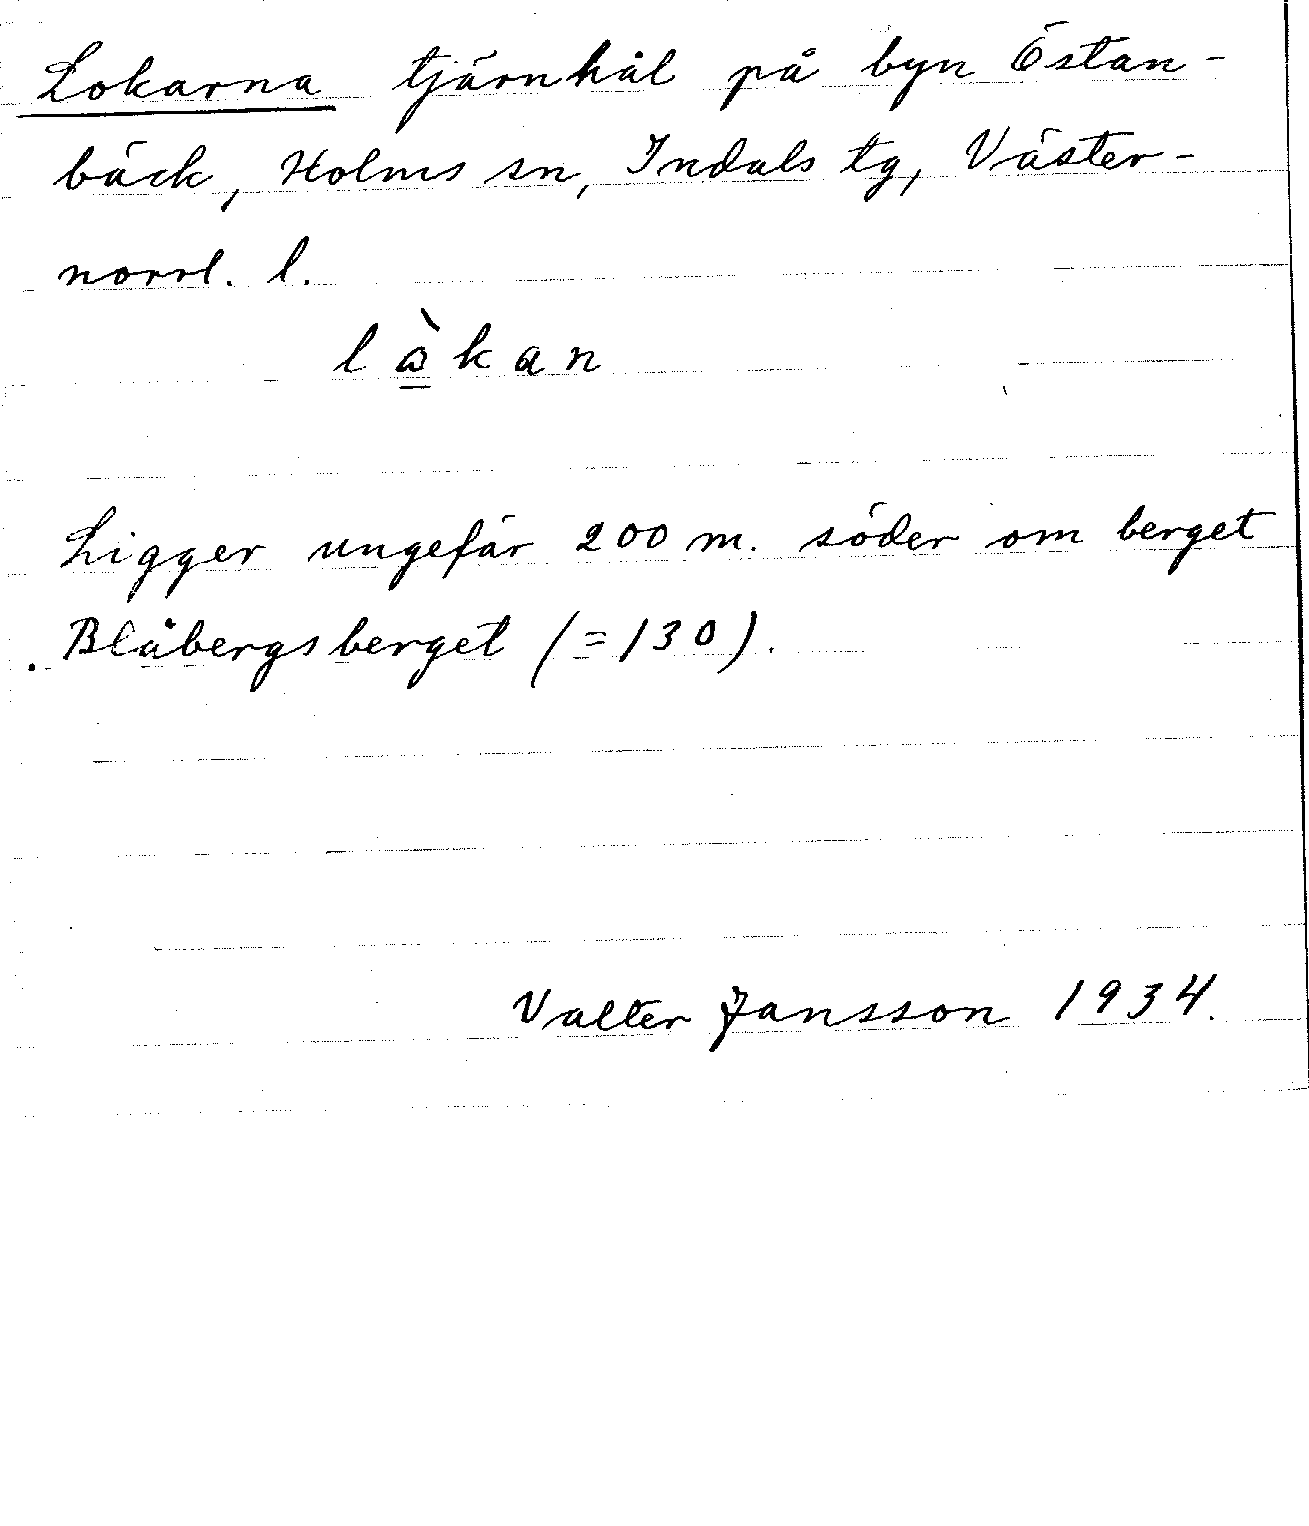 Lokarna tjärnhål på byn Östan-
bäck, Holms sn, Indals tg, Väster-
norrl. l.
làkan
Ligger ungefär 200 m. söder om berget
Blåbergsberget (=130).
Valter Jansson 1934.